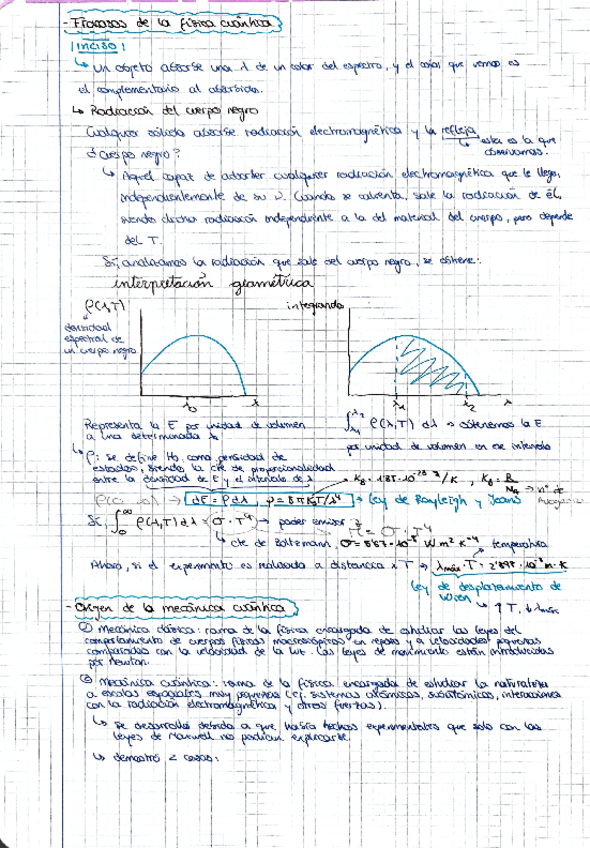 - Fracasos de la física cuántica
¡INCISO!
↳ Un objeto absorbe una λ de un color del espectro, y el color que vemos es
el complementario al absorbido.
↳ Radiación del cuerpo negro
Cualquier sólido absorbe radiación electromagnética y la refleja
↳ esta es la que
observamos.
¿Cuerpo negro?
↳ Aquel capaz de absorber cualquier radiación electromagnética que le llega,
independientemente de su ν. Cuando se calienta, sale la radiación de él,
siendo dicha radiación independiente a la del material del cuerpo, pero depende
del T.
Si, analizamos la radiación que sale del cuerpo negro, se obtiene:
interpretación geométrica
ρ(λ,T)
integrando
densidad
espectral de
un cuerpo negro
λ₀ λ
λ₁ λ₂ λ
Representa la E por unidad de volumen
a una determinada λ
∫λ₁^λ₂ ρ(λ,T) dλ → obtenemos la E
por unidad de volumen en ese intervalo
↳ ρ: se define como densidad de
estados, siendo la cte de proporcionalidad
entre la densidad de E y el intervalo de λ
K_B = 1'38·10⁻²³ J/K, K_B = R/N_A → nº de
→ dE = ρ dλ, ρ = 8πK_BT/λ⁴ → Ley de Rayleigh y Jeans
Si, ∫₀^∞ ρ(λ,T) dλ = σ·T⁴ → poder emisor = σ·T⁴
↳ cte de Boltzmann, σ = 5'67·10⁻⁸ W m² K⁻⁴
temperatura
Ahora, si el experimento es realizado a distancia λ T → λmáx · T = 2'898·10⁻³ m·K
Ley de desplazamiento de
Wien ↳ ↑T, ↓λmáx
- Origen de la mecánica cuántica
① Mecánica clásica: rama de la física encargada de estudiar las leyes del
comportamiento de cuerpos físicos macroscópicos en reposo y a velocidades pequeñas
comparadas con la velocidad de la luz. Las leyes de movimiento están introducidas
por Newton.
② Mecánica cuántica: rama de la física encargada de estudiar la naturaleza
a escalas espaciales muy pequeñas (ej. sistemas atómicos, subatómicos, interacciones
con la radiación electromagnética y otras fuerzas).
↳ Se desarrolló debido a que había hechos experimentales que solo con las
leyes de Maxwell no podían explicarse.
↳ demostró 2 cosas: